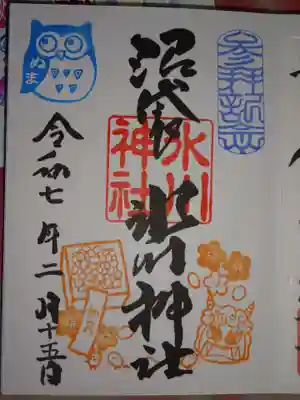 参拝記念
沼袋 氷川神社
氷川
神社
令和七年二月十五日
ぬま